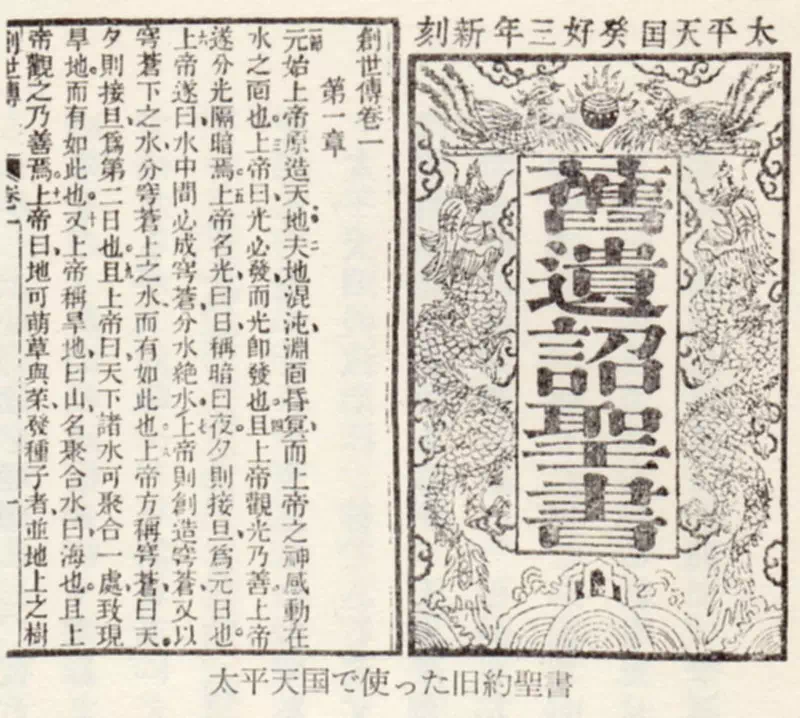 太平天国癸好三年新刻
舊遺詔聖書
創世傳卷一
第一章
元始上帝原造天地夫地混沌淵面昏冥而上帝之神感動在
水之面也上帝曰光必發而光即發也且上帝觀光乃善上帝
遂分光隔暗焉上帝名光曰日稱暗曰夜夕則接旦爲元日也
上帝遂曰水中間必成穹蒼分水絶水上帝則創造穹蒼又以
穹蒼下之水分穹蒼上之水而有如此也上帝方稱穹蒼曰天
夕則接旦爲第二日也且上帝曰天下諸水可聚合一處致現
旱地而有如此也又上帝稱旱地曰山名聚合水曰海也且上
帝觀之乃善焉上帝曰地可萌草與菜發種子者並地上之樹
創世傳 卷一 一
太平天国で使った旧約聖書